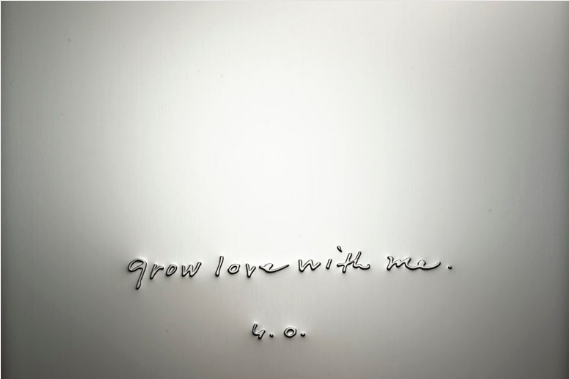 grow love with me.
y. o.